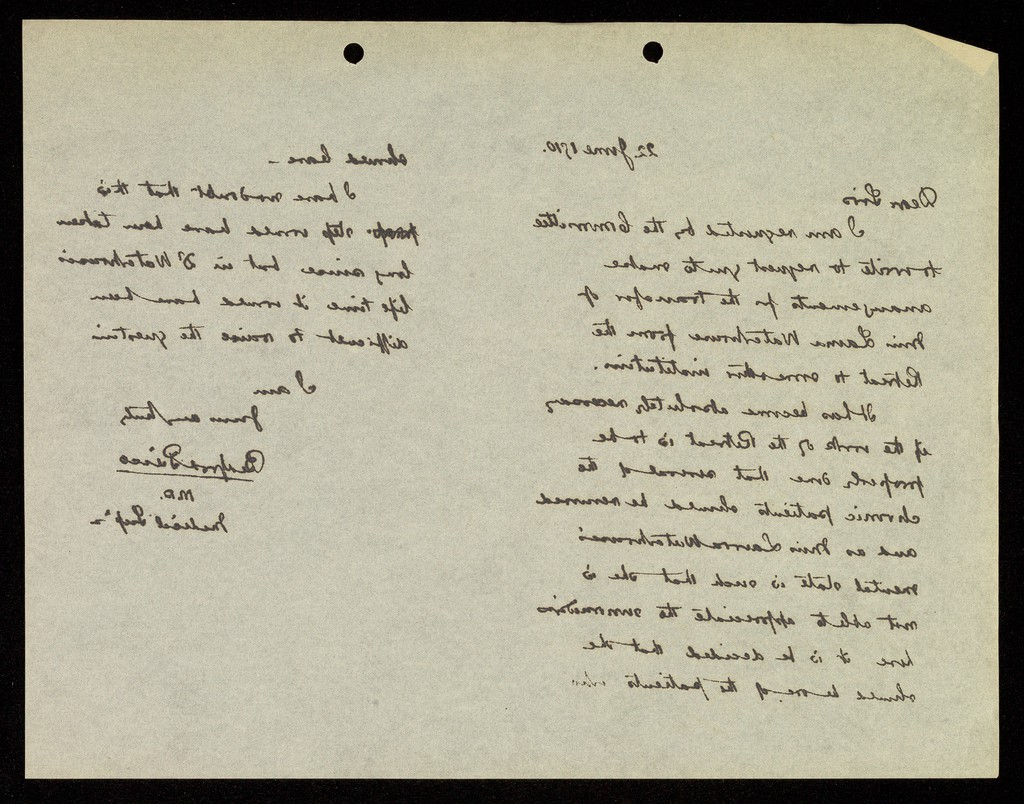 22 June 1910.
Dear Sirs
I am requested by the Committee
to write to request you to make
arrangements for the transfer of
Miss Laura Waterhouse from the
Retreat to some other institution.
It has become absolutely necessary
if the work of the Retreat is to be
properly done that several of the
chronic patients should be removed
and as Miss Laura Waterhouse's
mental state is such that she is
not able to appreciate the surroundings
here it is be decided that she
should be one of the patients who
should leave —
I have no doubt that this
step would have been taken
long since but in Dr Waterhouse's
life time it would have been
difficult to raise the question
I am
Yours truly
Bedford Pierce
M.D.
Medical Supt